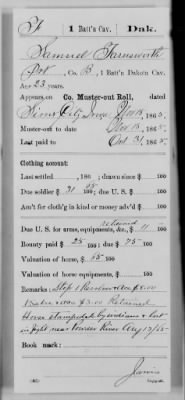 F 1 Batt'n Cav. Dak.
Samuel Farnsworth
Pvt, Co. B, 1 Batt'n Dakota Cav.
Age 23 years.
Appears on Co. Muster-out Roll, dated
Sioux City Iowa Nov 15, 1865.
Muster-out to date Nov 15, 1865.
Last paid to Oct 31, 1865.
Clothing account:
Last settled , 186 ; drawn since $ 100
Due soldier $ 21 65/100; due U. S. $ 100
Am't for cloth'g in kind or money adv'd $ 100
retained
Due U. S. for arms, equipments, &c., $ 11 100
Bounty paid $ 25 100; due $ 75 100
Valuation of horse, $ 65 100
Valuation of horse equipments, $ 100
Remarks: Stop 1 Revolver $8.00
1 Sabre $3.00 Retained
Horse stampeded by indians & lost
in fight near Powder River Aug 17/65
Book mark: